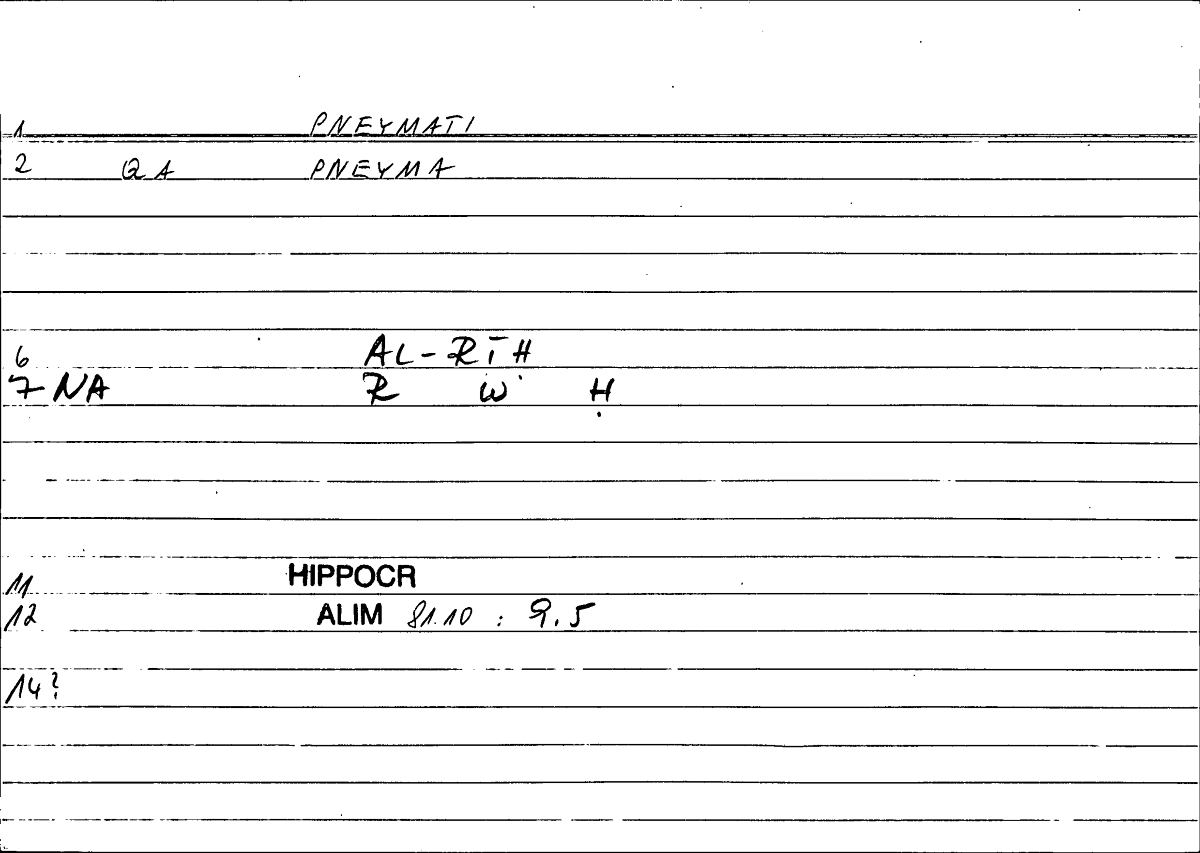 1 PNEYMATI
2 QA PNEYMA
6 AL-RĪḤ
7 NA R W Ḥ
11 HIPPOCR
12 ALIM 81.10 : 9.5
14?